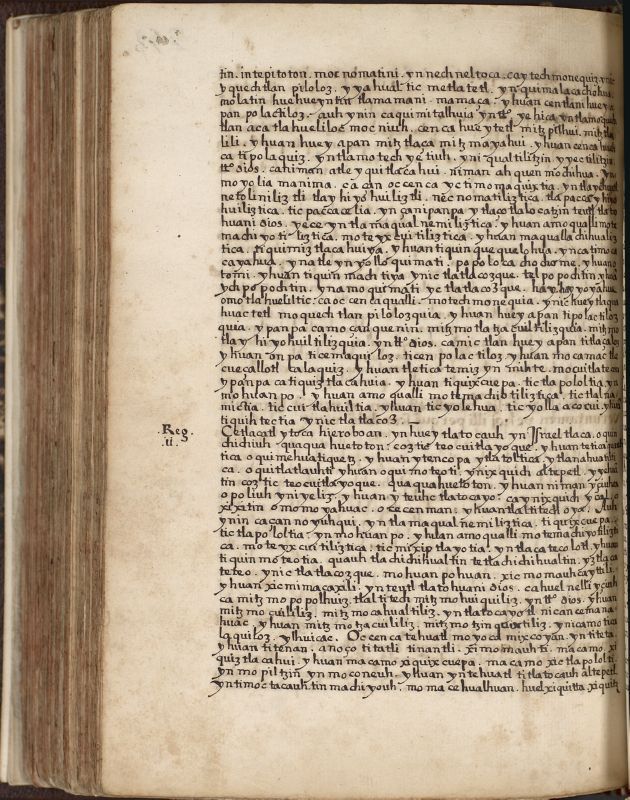 tin. intepitoton. mocnomatini. yn nechneltoca. cay techmonequiz. ynic
yquechtlan piloloz. yyahual tic metlatetl. yn quimalacachohua
molatin huehueyntin tlamamani. mamaca. yhuan centlani huey a
pan polactiloz. auh ynin caquimitalhuia yn tt.º yehica yntlamoquech
tlan aca tlahueliloc mocniuh. cenca hueytetl mitz pilhui. mitztla
lili. yhuan huey apan mitztlaça mitzmayahui. yhuan cenca huech
ca tipolaquiz. yntlamotech yetiuh. yniqualtilitzin yyectilitzin
tt.º dios. cahiman atle yquitlacahui. niman ahquen mochihua. yn
moyolia manima. caçan occenca yctimomaquixtia. yntlaychuel
netoliniliztli tlayhiyohuiliztli. necnomatiliztica. tlapaccayhiyo
huiliztica. ticpaccacelia. yn çanipanpa ytlaçotlalocatzin teutl tlato
huani dios. yece yntlamaqualnemiliztica. yhuan amoqualli mote
machiyotiliztica. moteyxcuitiliztica. yhuan maqualla chihualiz
tica. tiquimiztlacahuiya. yhuan tiquinquequelohua. yncatimo ca
cayahua. ynatle ynyollo quimati. papoloca chochome. yhuan o
tomi. yhuan tiquimmachtiya ynictlatlacozque. telpopochtin. yhuan
ychpopochtin. ynamoquimati yctlatlacozque. hay. hay yoyahue
omotlahueliltic: caoccencaqualli. motechmonequia. ynic hueytlaqua
huac tetl moquechtlan pilolozquia. yhuan huey apan tipolactiloz
quia. ypanpa camo çanquenin. mitzmotlatzacuiltilizquia. mitzmo
tlayhiyohuiltilizquia. yntt.º dios. camic tlan huey apan titlaçaloz
yhuan onpa ticemaquiloz. ticenpolactiloz. yhuan mocamactle
cueçallotl calaquiz. yhuan tletica temiz yn mihte. mocuitlatecon
ynpanpa catiquiztlacahuia. yhuan tiquixcuepa. tictlapololtia yn
mohuanpo. yhuan amoqualli motemachiotiliztica. tictlalna
mictia. ticcuitlahuiltia. yhuan ticyolehua. ticyollaacocui. yhuan
tiquihtectia ynictlatlacoz.
.Reg. Ce tlacatl ytoca hieroboan. yn huey tlatocauh yn Israel tlaca. oquin
.ii. chichiuh. quaquahuetoton: coztic teocuitlayoque. yhuan tetica
tica oquimehualtiquetz. yhuan ytencopa ytlatoltica. ytlanahuatil
ca. oquitlatlauhti yhuan oquimoteoti. ynixquich altepetl. yyehua
tin coztic teocuitlayoque. quaquahuetoton. yhuan niman ycuhca
opoliuh yniyeliz. yhuan yteuhctlatocayo. caynixquich yçal. o
xixitin omomoyahuac. ocecenman. yhuan tlaltitech oya. Auh
ynin caçan noyuhqui. yntlamaqualnemiliztica. tiquixcuepa.
tictlapololtia. ynmohuanpo. yhuan amoqualli motemachiyotiliz
ca. moteyxcuitiliztica. ticmixiptlayotia. yntlacatecolotl. yhuan
tiquinmoteotia. quauhtlachichihualtin tetlachichihualtin. yztlaca
teteo. ynictlatlacozque. mohuanpohuan. xicmomauhcaytili.
yhuan xicmimacaxili. yn teutl tlatohuani dios. cahuel nelli ycuh
ca mitzmopopolhuiz. tlaltitech mitzmohuiquiliz. yntt.º dios. yhuan
mitzmocuililiz. mitzmocahualtiliz. yntlatocayotl nican cemana
huac. yhuan mitzmotzacuililiz. mitzmotzinquixtiliz. ynicamo ticca
laquiloz. ylhuicac. Occenca tehuatl moyoca mixcoyan. yn titeta.
yhuan titenan. anoço titatli tinantli. ximomauhti. macamo. xi
quiztlacahui. yhuan macamo xiquixcuepa. macamo xictlapololti.
yn mopiltzin ynmoconeuh. yhuan yntehuatl titlatocauh altepetl
yntimoctacauhtin machiyouh. momacehualhuan. huel xiquitta xiquitz